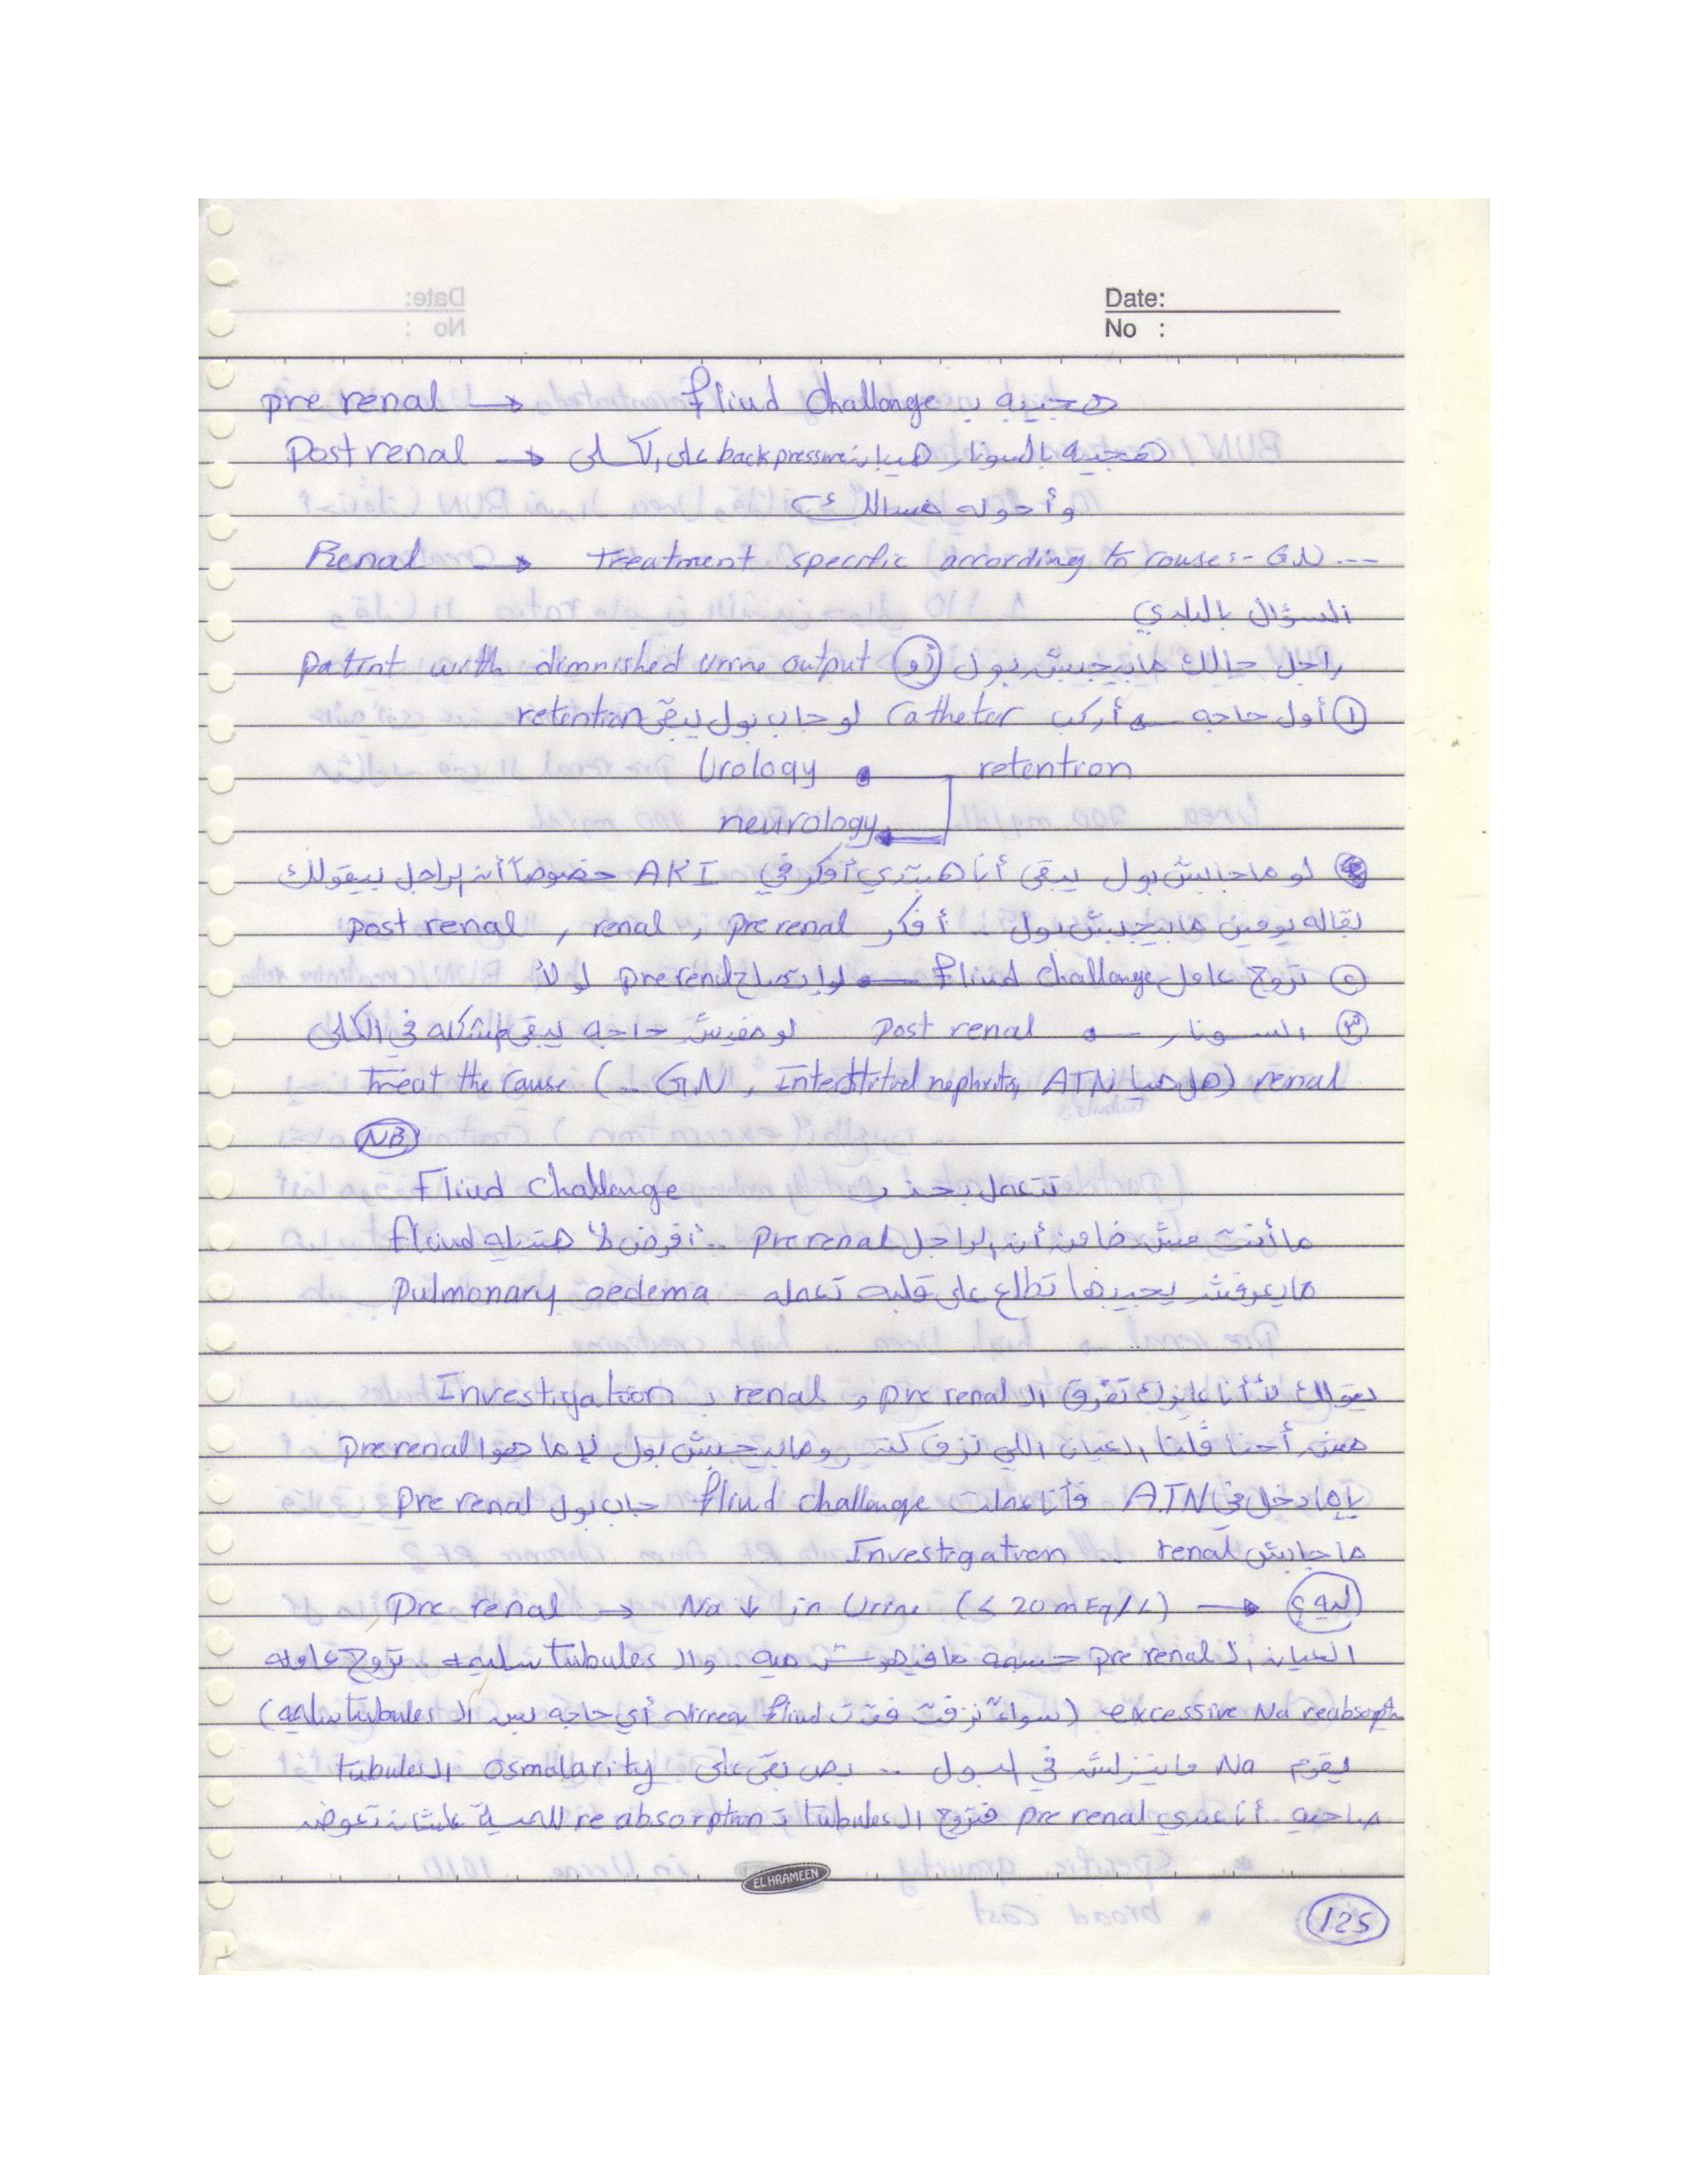 Date:
No :
pre renal → fliud challenge هجيبه بـ
Post renal → هجيبه بالسونار هيبان back pressure على الكلى
وأحوله مسالك
Renal → Treatment specific according to couse:- GN ---
السؤال بالبلدي
راجل جالك مابيجيبش بول (أو) patint with dimnished urine output
① أول حاجه → أركب Catheter لو جاب بول يبقى retention
retention Urology
neurology
لو ماجابش بول يبقى أنا هبتدي أفكر في AKI خصوصاً أن الراجل بيقولك
بقاله يومين مابيجيبش بول .. أفكر pre renal , renal , post renal
② تروح عامل fliud challenge → لو اتصلح pre renal لو لأ
③ السونار → post renal لو مفيش حاجه يبقى مشكله في الكلى
renal (هل هيا ATN , Interstitial nephritis , GN ..) treat the cause
NB
Fliud challenge تتعمل بحذر
ما أنت مش ضامن أن الراجل pre renal .. أفرض لا هتديله fliud
مايعرفش يجيبها تطلع على قلبه تعمله pulmonary oedema
يقولك لأ أنا عايزك تفرق الـ pre renal و renal بـ Investigation
مش أحنا قلنا العيان اللي نزف كتير ومابيجيبش بول لإما هوا pre renal
يإما دخل في ATN فأنا عملت fliud challenge جاب بول pre renal
ماجابش renal . Investigation
Pre renal → Na ↓ in Urine (≤ 20 mEq/L) → ليه؟
العيان الـ pre renal جسمه مافيهوش ميه .. والـ tubules سليمه .. تروح عامله
excessive Na reabsoptn (سواءً نزفت فقدت fliud أي حاجه بس الـ tubules سليمه)
يقوم Na ماينزلش في البول .. بص بقى على osmolarity الـ tubules
صاحيه .. أنا عندي pre renal فتروح الـ tubules تـ reabsorption للمية علشان تعوض
EL HRAMEEN
125